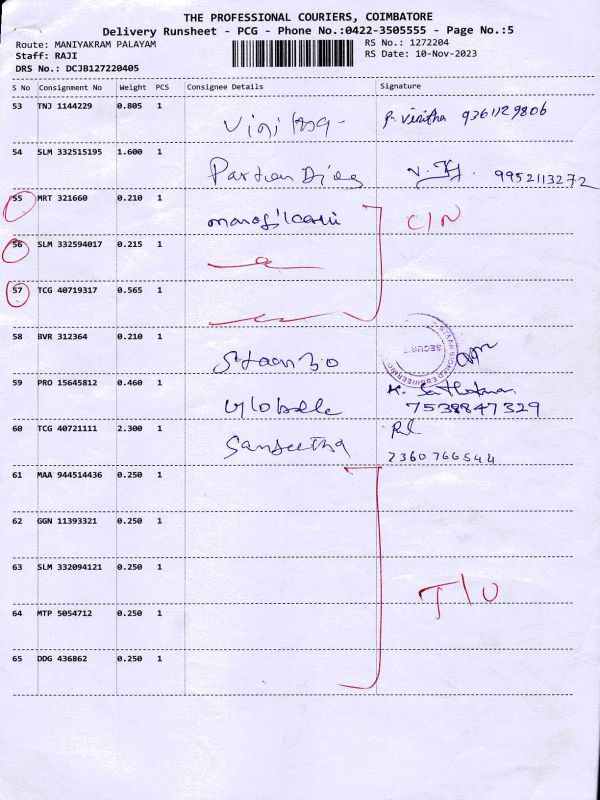 THE PROFESSIONAL COURIERS, COIMBATORE
Delivery Runsheet - PCG - Phone No.:0422-3505555 - Page No.:5
Route: MANIYAKRAM PALAYAM
RS No.: 1272204
Staff: RAJI
RS Date: 10-Nov-2023
DRS No.: DCJB127220405
S No Consignment No Weight PCS Consignee Details Signature
53 TNJ 1144229 0.805 1 9361129806
54 SLM 332515195 1.600 1 9952113272
55 MRT 321660 0.210 1 C/N
56 SLM 332594017 0.215 1
57 TCG 40719317 0.565 1
58 BVR 312364 0.210 1
59 PRO 15645812 0.460 1 7538847329
60 TCG 40721111 2.300 1 Sangeetha 7360766544
61 MAA 944514436 0.250 1
62 GGN 11393321 0.250 1
63 SLM 332094121 0.250 1
T/U
64 MTP 5054712 0.250 1
65 DDG 436862 0.250 1